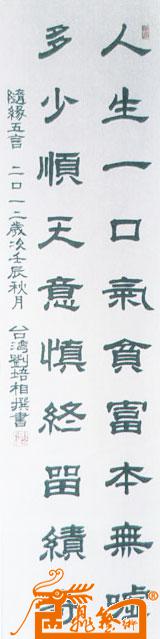 人生一口氣貧富本無
多少順天意慎終留績
隨緣五言 二〇一二歲次壬辰秋月 台湾劉培相撰書